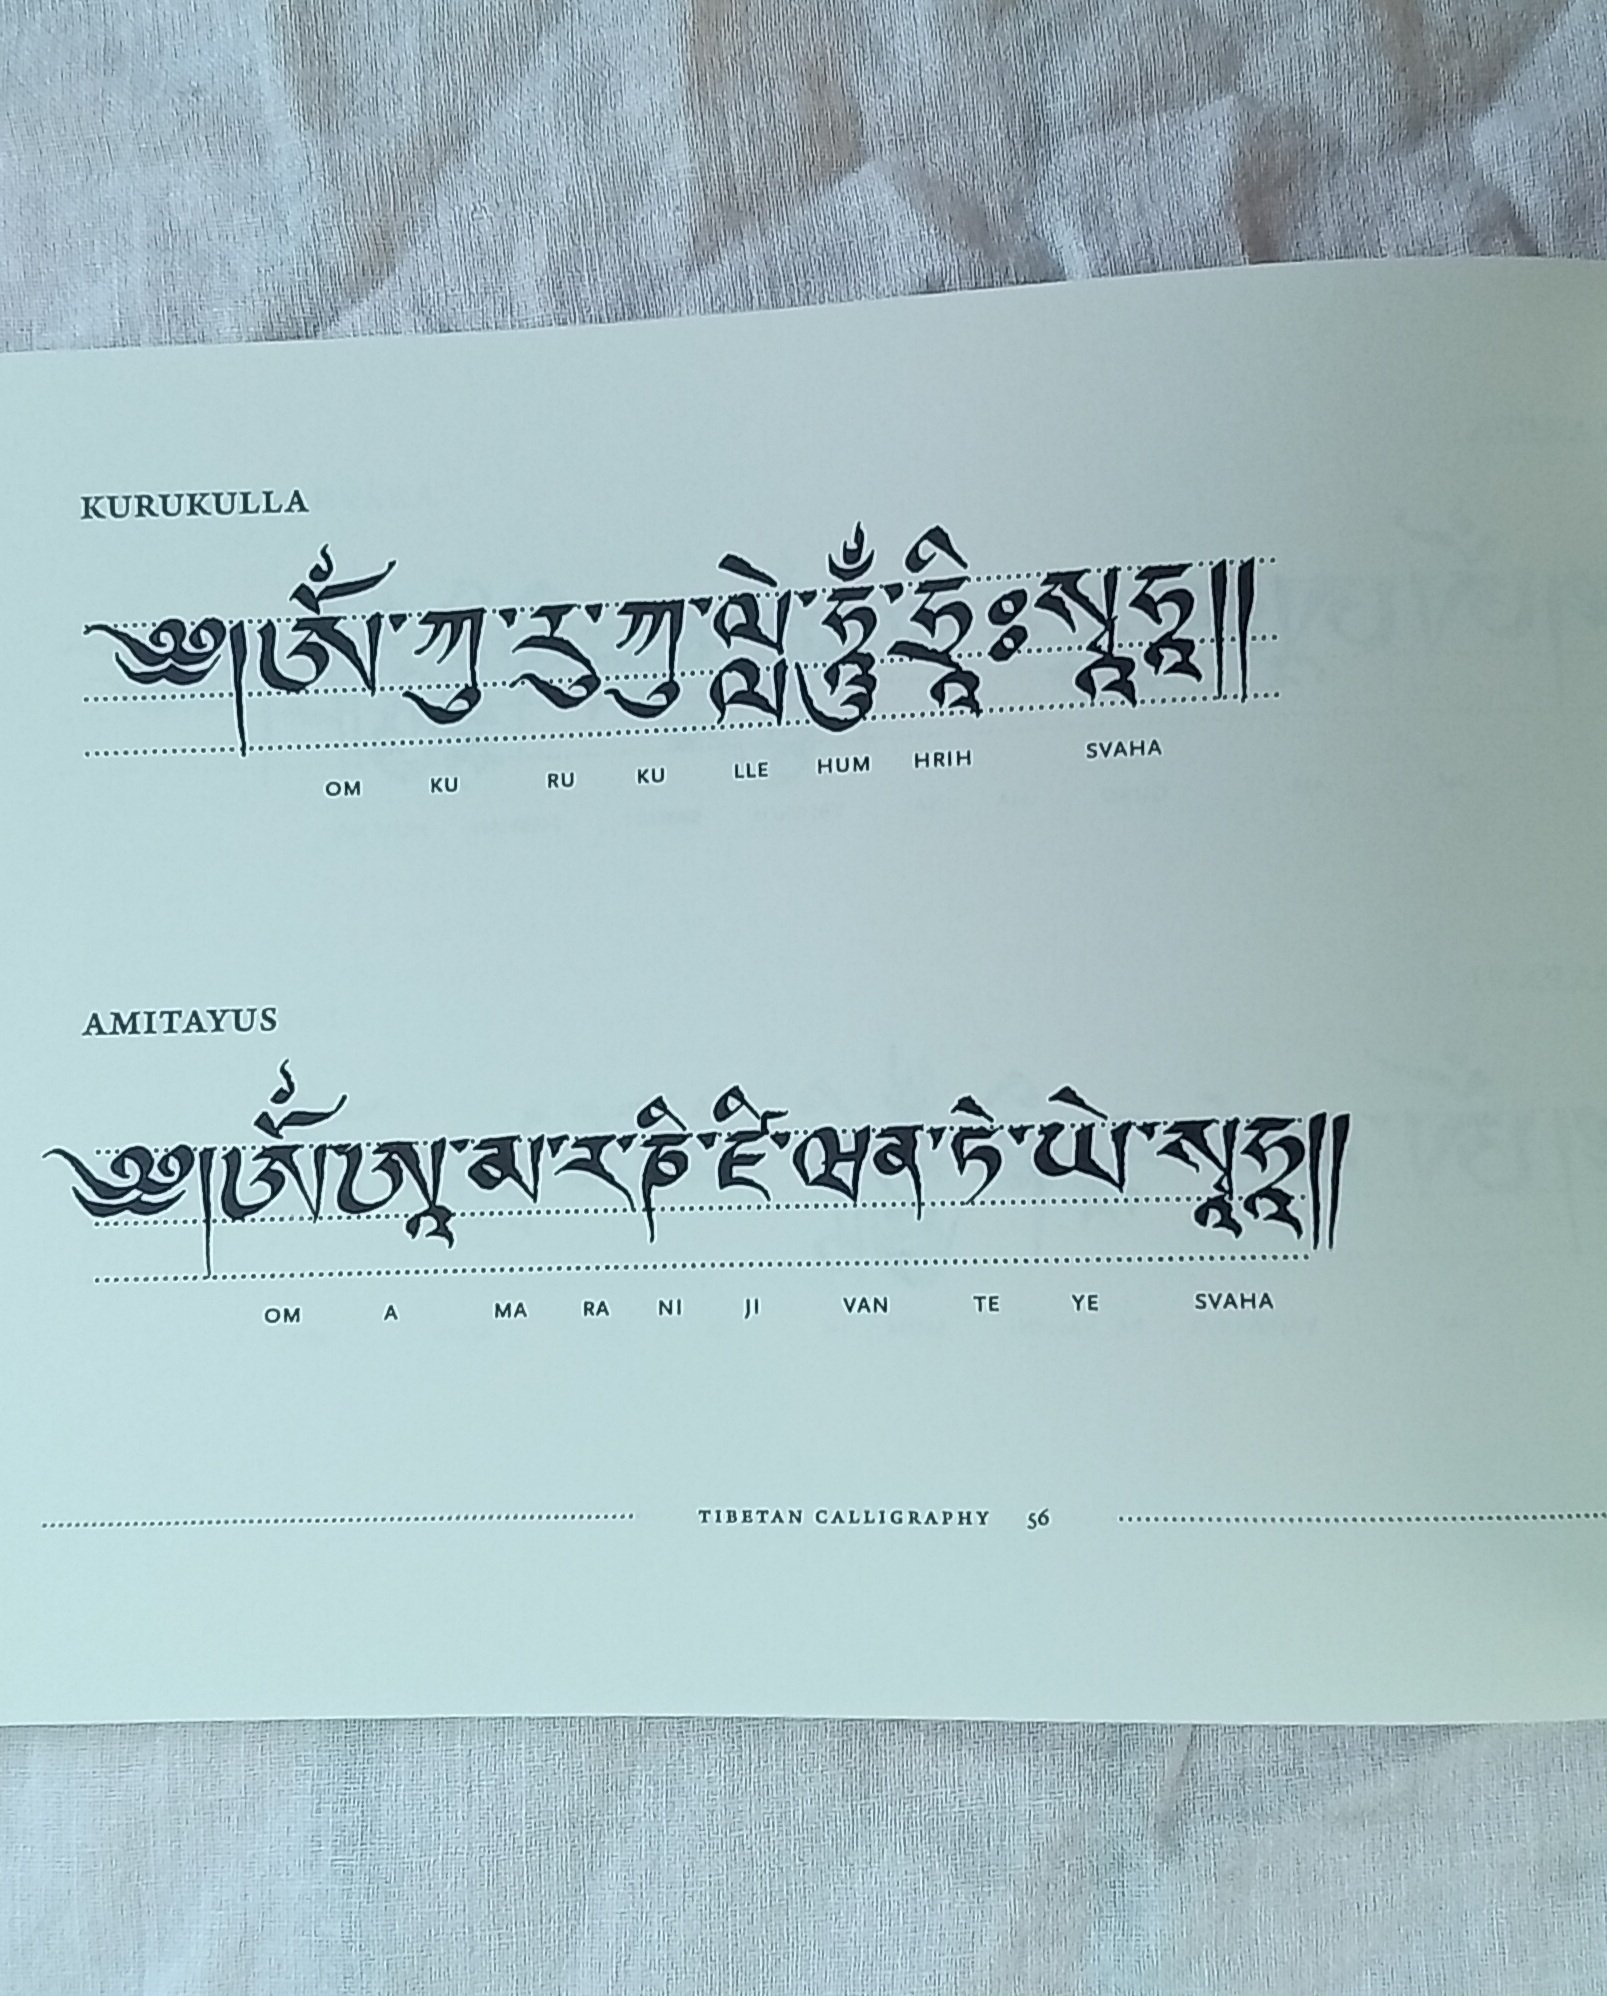 KURUKULLA
༄།ཨོཾ་ཀུ་རུ་ཀུ་ལླེ་ཧཱུྃ་ཧྲཱིཿསྭཱཧཱ༎
OM KU RU KU LLE HUM HRIH SVAHA
AMITAYUS
༄།ཨོཾ་ཨཱ་མ་ར་ཎི་ཛཱི་ཝན་ཏེ་ཡེ་སྭཱཧཱ༎
OM A MA RA NI JI VAN TE YE SVAHA
TIBETAN CALLIGRAPHY 56